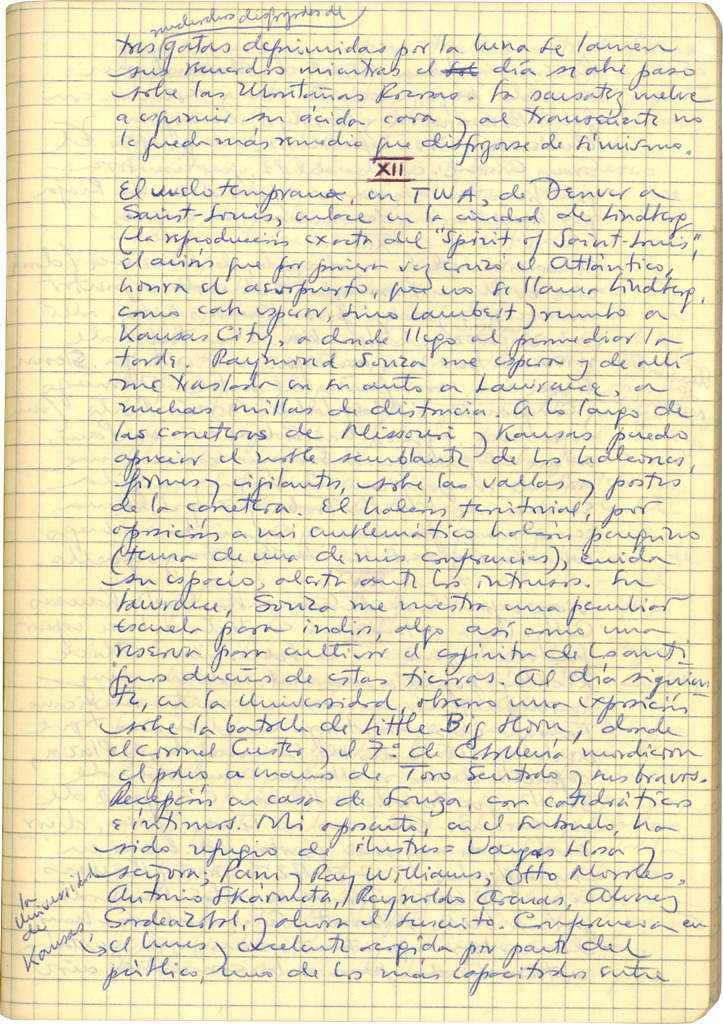 muchachas disfrazadas de
tres gatas deprimidas por la luna se lamen
sus recuerdos mientras el día se abre paso
sobre las Montañas Rocosas. La sensatez vuelve
a esgrimir su ácida cara y al transeúnte no
le queda más remedio que disfrazarse de sí mismo.
XII
El vuelo tempranero, en TWA, de Denver a
Saint-Louis, enlace en la ciudad de Lindberg
(la reproducción exacta del "Spirit of Saint-Louis",
el avión que por primera vez cruzó el Atlántico,
honra el aeropuerto, que no se llama Lindberg,
como cabe esperar, sino Lambert) rumbo a
Kansas City, a donde llego al promediar la
tarde. Raymond Souza me espera y de allí
me traslada en su auto a Lawrence, a
muchas millas de distancia. A lo largo de
las carreteras de Missouri y Kansas puedo
apreciar el noble semblante de los halcones,
firmes y vigilantes, sobre las vallas y postes
de la carretera. El halcón territorial, por
oposición a mi emblemático halcón peregrino
(tema de una de mis conferencias), cuida
su espacio, alerta ante los intrusos. En
Lawrence, Souza me muestra una peculiar
escuela para indios, algo así como una
reserva para cultivar el espíritu de los anti-
guos dueños de estas tierras. Al día siguien-
te, en la Universidad, observo una exposición
sobre la batalla de Little Big Horn, donde
el Coronel Custer y el 7º de Caballería mordieron
el polvo a manos de Toro Sentado y sus bravos.
Recepción en casa de Souza, con catedráticos
e íntimos. Mi aposento, en el subsuelo, ha
sido refugio de ilustres: Vargas Llosa y
señora; Pam y Ray Williams; Otto Morales,
Antonio Skármeta, Reynaldo Arenas, Alvarez
Gardeazábal, y ahora el suscrito. Conferencia en
la Universidad de Kansas,
el lunes y excelente acogida por parte del
público, uno de los más capacitados entre